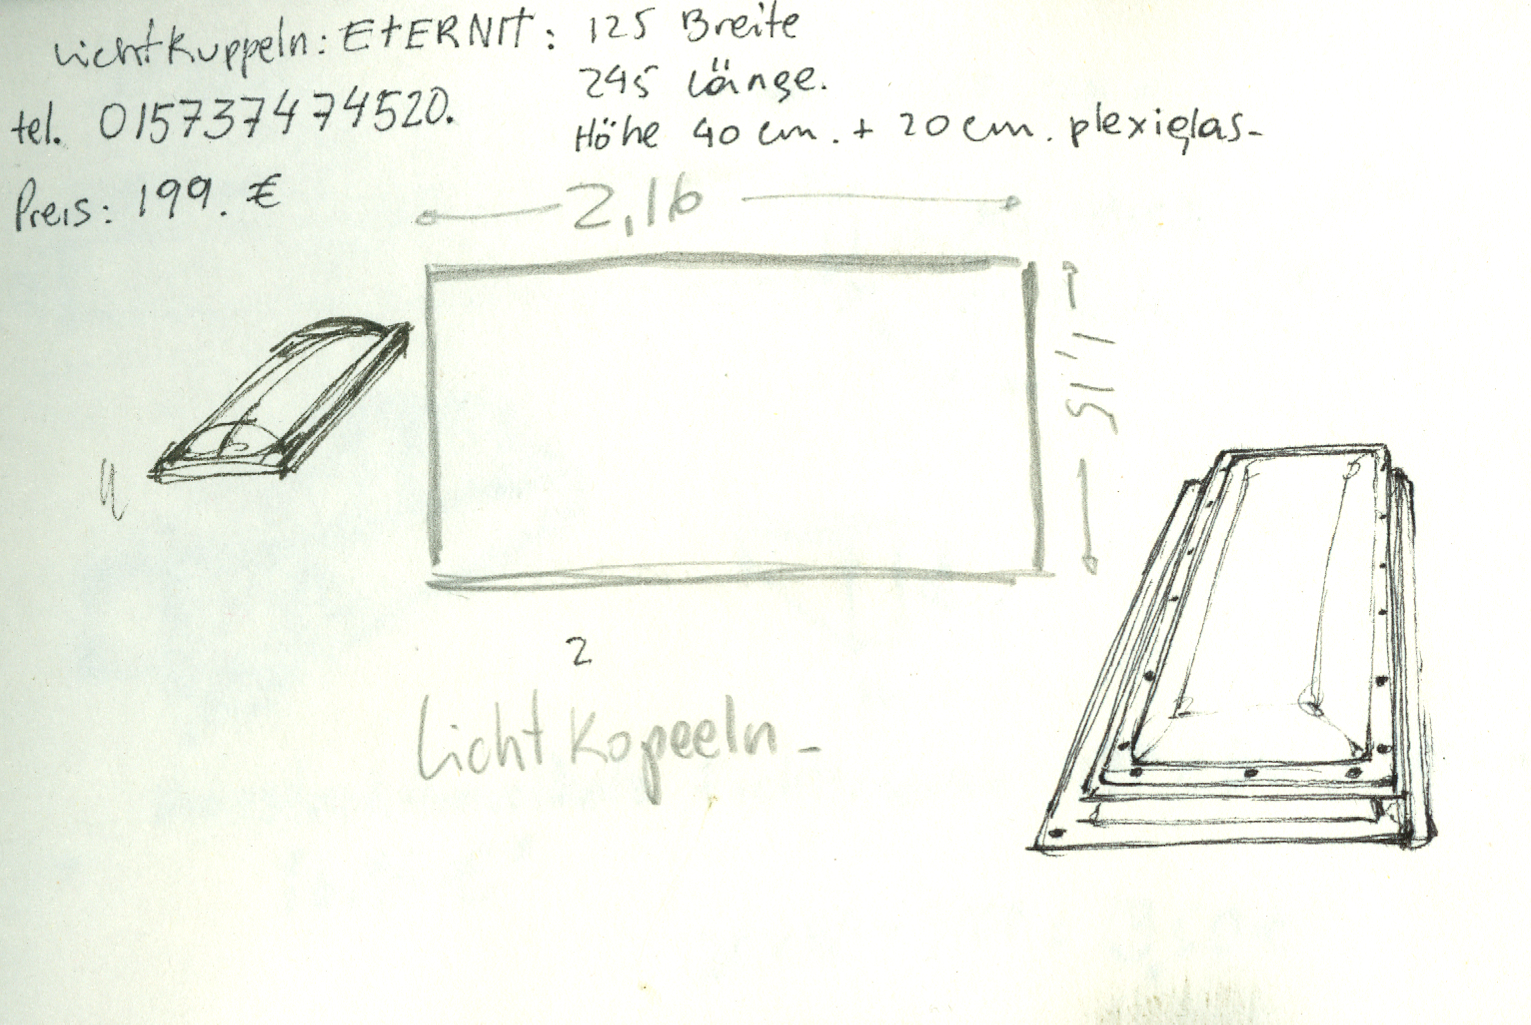 Lichtkuppeln: EtERNIt: 125 Breite
245 Länge.
tel. 015737474520.
Höhe 40 cm. + 20 cm. plexiglas-
Preis: 199. €
2,16
1,15
2
Licht Kopeeln-